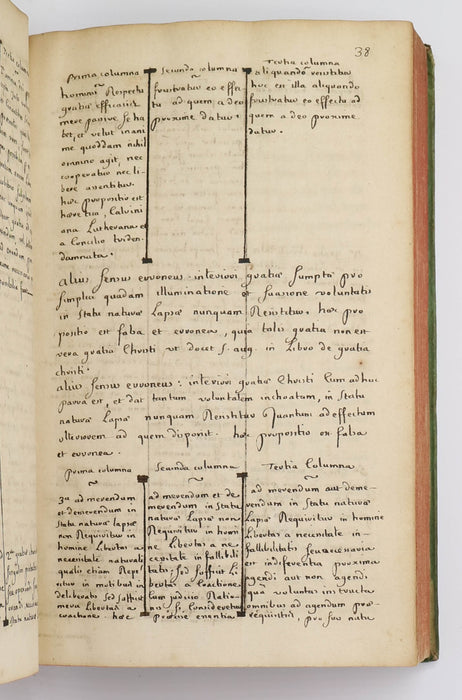 38
Prima columna
hominis Respectu
gratiæ efficacis
mere passive se ha
bet, et velut inani
me quoddam nihil
omnino agit, nec
cooperatur nec li-
bere assentitur.
hæc propositio est
hæretica, Calvini
ana Lutherana et
a Concilio triden.
damnata.
Secunda columna
frustratur eo effec-
tu ad quem a deo
proxime datur.
Tertia columna
aliquando resistitur
hoc est illa aliquando
frustratur eo effectu ad
quem a deo proxime
datur.
alius sensus erroneus. interiori gratiæ sumptæ pro
simplici quadam illuminatione et suasione voluntatis
in statu naturæ Lapsæ nunquam Resistitur. hæc pro
positio est falsa et erronea, quia talis gratia non est
vera gratia Christi ut docet s. aug. in Libro de gratia
christi.
alius sensus erroneus: interiori gratiæ Christi cum adhuc
parva est, et dat tantum voluntatem inchoatam, in statu
naturæ Lapsæ nunquam Resistitur quantum ad effectum
ulteriorem ad quem disponit. hæc propositio est falsa
et erronea.
Prima columna
3a ad merendum
et demerendum in
statu naturæ lapsæ
non Requiritur in
homine Libertas a
necessitate naturali
qualis etiam Repe
ritur in motibus in
deliberatis sed sufficit
mera Libertas a
coactione. hæc
Secunda columna
ad merendum et de
merendum in statu
naturæ Lapsæ non
Requiritur in homi
ne Libertas a ne
cessitate infallibili
tatis; sed sufficit Li
bertas a coactione
cum judicio Ratio
nis si consideretur
præcise essentia
Tertia Columna
ad merendum aut deme-
rendum in statu naturæ
Lapsæ Requiritur in homine
Libertas a necessitate in-
fallibilitatis seu necessaria
est indifferentia proxima
agendi aut non agendi
qua voluntas instructa
omnibus ad agendum præ-
requisitis, pro suo nutu